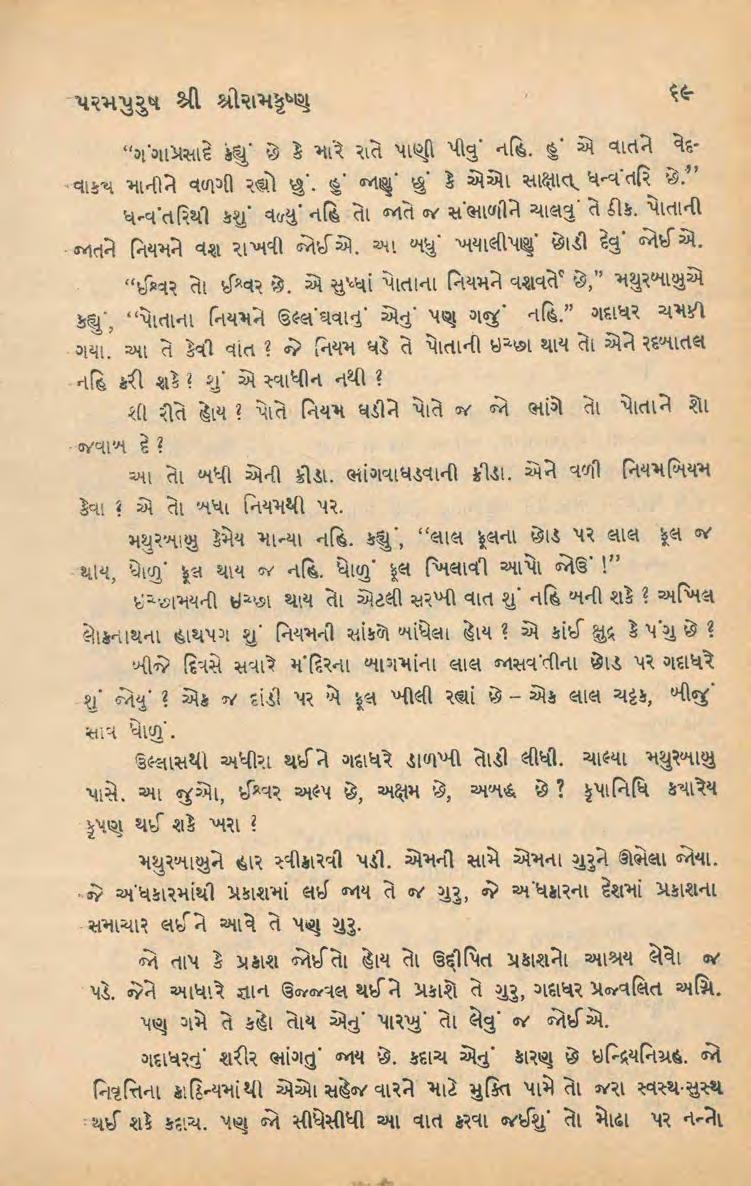 પરમપુરુષ શ્રી શ્રીરામકૃષ્ણ
૬૯
“ગંગાપ્રસાદે કહ્યું છે કે મારે રાતે પાણી પીવું નહિ. હું એ વાતને વેદ-
વાકય માનીને વળગી રહ્યો છું. હું જાણું છું કે એઓ સાક્ષાત્ ધન્વંતરિ છે.”
ધન્વંતરિથી કશું વળ્યું નહિ તો જાતે જ સંભાળીને ચાલવું તે ઠીક. પોતાની
જાતને નિયમને વશ રાખવી જોઈએ. આ બધું ખયાલીપણું છોડી દેવું જોઈએ.
“ઈશ્વર તો ઈશ્વર છે. એ સુધ્ધાં પોતાના નિયમને વશવર્તે છે,” મથુરબાબુએ
કહ્યું, “પોતાના નિયમને ઉલ્લંઘવાનું એનું પણ ગજું નહિ.” ગદાધર ચમકી
ગયા. આ તે કેવી વાત ? જે નિયમ ઘડે તે પોતાની ઇચ્છા થાય તો એને રદબાતલ
નહિ કરી શકે ? શું એ સ્વાધીન નથી ?
શી રીતે હોય ? પોતે નિયમ ઘડીને પોતે જ જો ભાંગે તો પોતાને શો
જવાબ દે ?
આ તો બધી એની ક્રીડા. ભાંગવાઘડવાની ક્રીડા. એને વળી નિયમબિયમ
કેવા ? એ તો બધા નિયમથી પર.
મથુરબાબુ કેમેય માન્યા નહિ. કહ્યું, “લાલ ફૂલના છોડ પર લાલ ફૂલ જ
થાય, ધોળું ફૂલ થાય જ નહિ. ધોળું ફૂલ ખિલાવી આપો જોઉં !”
ઇચ્છામયની ઇચ્છા થાય તો એટલી સરખી વાત શું નહિ બની શકે ? અખિલ
લોકનાથના હાથપગ શું નિયમની સાંકળે બાંધેલા હોય ? એ કાંઈ ક્ષુદ્ર કે પંગુ છે ?
બીજે દિવસે સવારે મંદિરના બાગમાંના લાલ જાસવંતીના છોડ પર ગદાધરે
શું જોયું ? એક જ દાંડી પર બે ફૂલ ખીલી રહ્યાં છે – એક લાલ ચટ્ટક, બીજું
સાવ ધોળું.
ઉલ્લાસથી અધીરા થઈને ગદાધરે ડાળખી તોડી લીધી. ચાલ્યા મથુરબાબુ
પાસે. આ જુઓ, ઈશ્વર અલ્પ છે, અક્ષમ છે, અબદ્ધ છે ? કૃપાનિધિ કયારેય
કૃપણ થઈ શકે ખરા ?
મથુરબાબુને હાર સ્વીકારવી પડી. એમની સામે એમના ગુરુને ઊભેલા જોયા.
જે અંધકારમાંથી પ્રકાશમાં લઈ જાય તે જ ગુરુ, જે અંધકારના દેશમાં પ્રકાશના
સમાચાર લઈને આવે તે પણ ગુરુ.
જો તાપ કે પ્રકાશ જોઈતો હોય તો ઉદ્દીપિત પ્રકાશનો આશ્રય લેવો જ
પડે. જેને આધારે જ્ઞાન ઉજ્જવલ થઈને પ્રકાશે તે ગુરુ, ગદાધર પ્રજ્વલિત અગ્નિ.
પણ ગમે તે કહો તોય એનું પારખું તો લેવું જ જોઈએ.
ગદાધરનું શરીર ભાંગતું જાય છે. કદાચ એનું કારણ છે ઇન્દ્રિયનિગ્રહ. જો
નિવૃત્તિના કાઠિન્યમાંથી એઓ સહેજ વારને માટે મુક્તિ પામે તો જરા સ્વસ્થ-સુસ્થ
થઈ શકે કદાચ. પણ જો સીધેસીધી આ વાત કરવા જઈશું તો મોઢા પર નન્નો